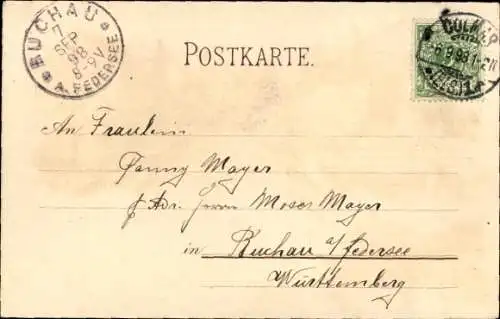 BUCHAU
7
SEP
98
8-9V
A. FEDERSEE
POSTKARTE.
COLMAR
6.9.98 1-2N
An Fraulein
Fanny Mayer
p Adr. Herrn Moses Mayer
in Buchau a/Federsee
Württemberg